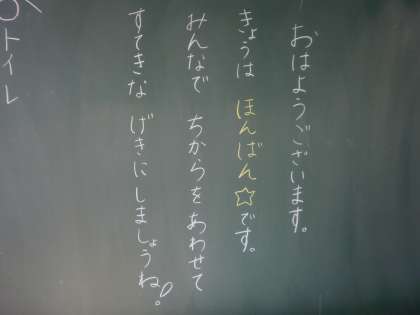 おはようございます。
きょうは ほんばん☆です。
みんなで ちからを あわせて
すてきな げきに しましょうね!
○トイレ